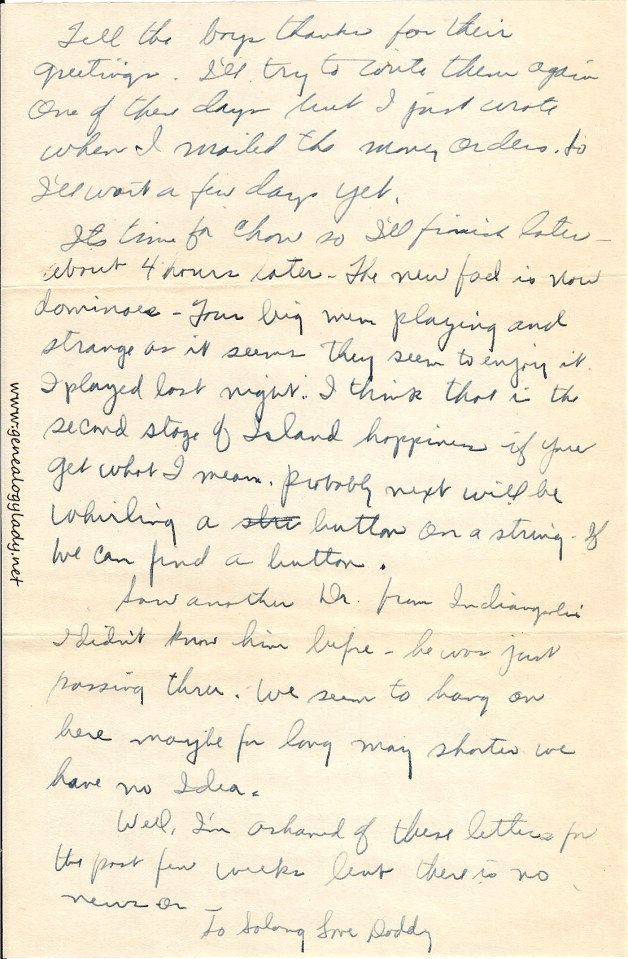 Tell the boys thanks for their
greetings. I'll try to write them again
One of these days but I just wrote
when I mailed the money orders. So
I'll wait a few days yet.
Its time for Chow so I'll finish later -
about 4 hours later - The new fad is now
dominoes - Four big men playing and
strange as it seems they seem to enjoy it.
I played last night. I think that is the
second stage of Island happiness if you
get what I mean. Probably next will be
whirling a button on a string - If
we can find a button.
Saw another Dr. from Indianapolis
I didn't know him before - he was just
passing thru. We seem to hang on
here maybe for long may shorter we
have no Idea.
Well, I'm ashamed of these letters for
the past few weeks but there is no
news or -
So Solong Love Daddy
www.genealogylady.net